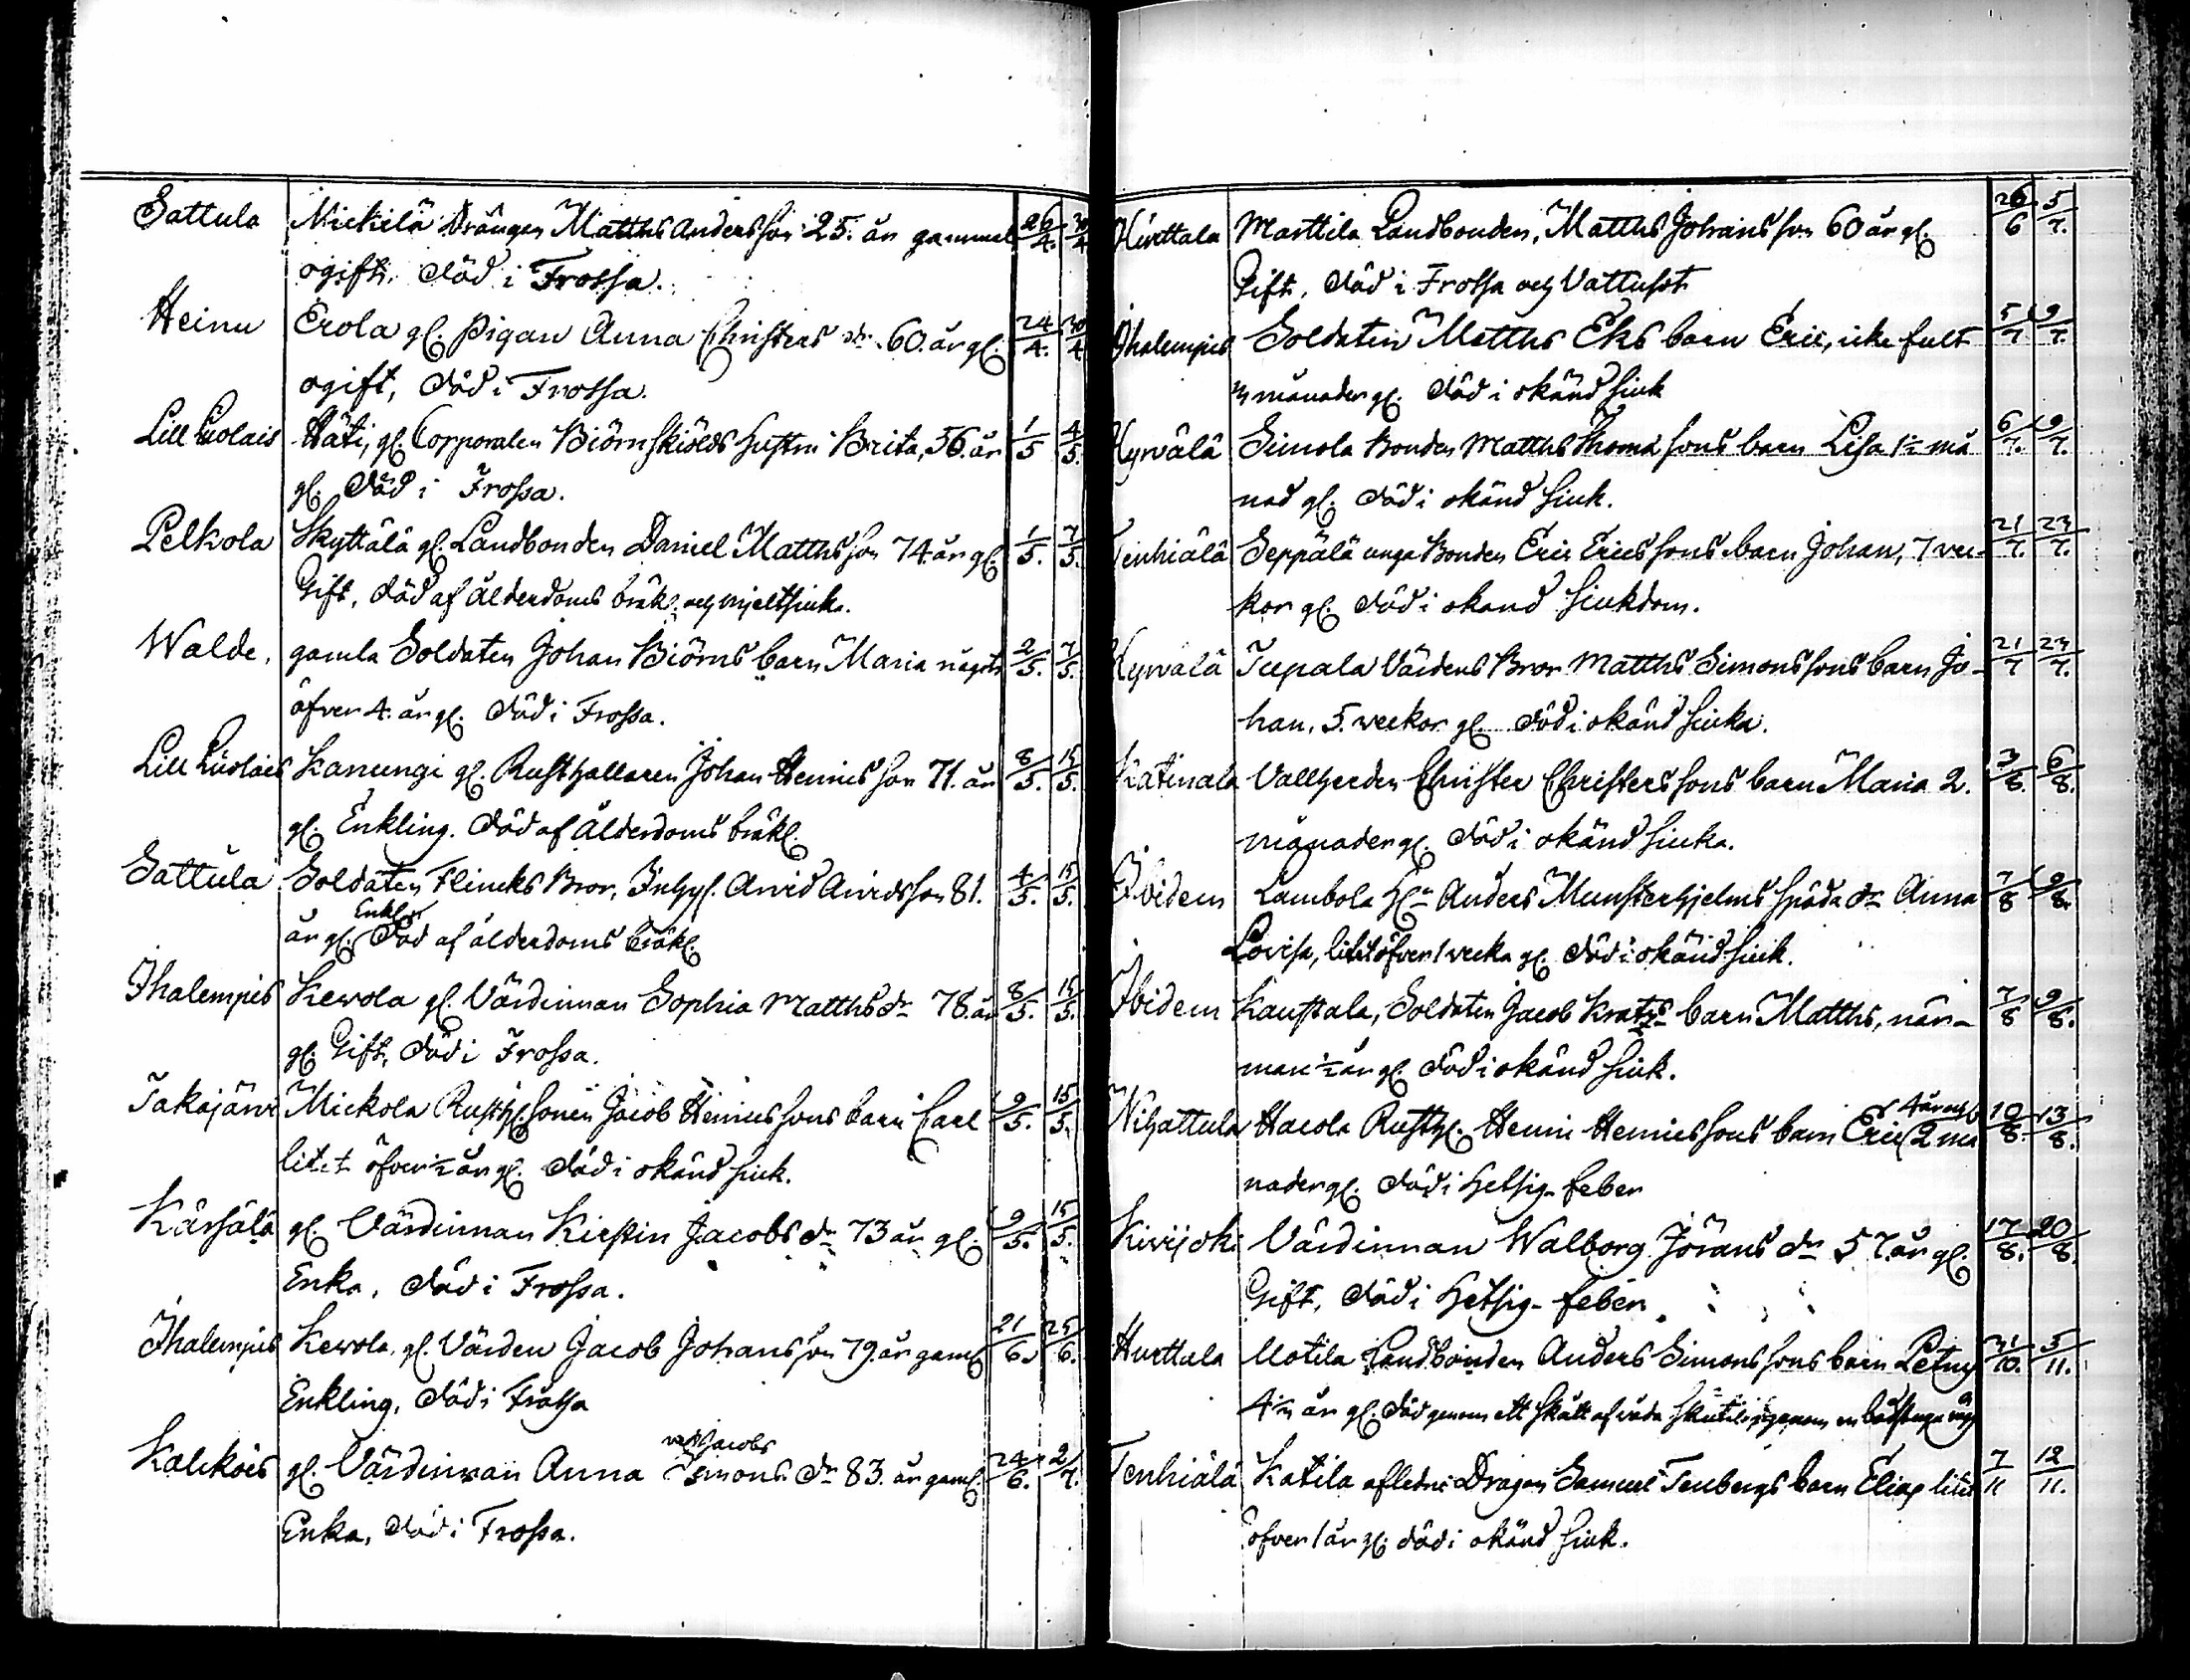 Sattula Mickilä Drängen Matths Andersson 25. år gammal 26/4. 30/4
ogift. död i Frossa.
Heinu Erola gl. Pigan Anna Christers dr. 60. år gl. 24/4. 30/4
ogift, död i Frossa.
Lill Luolais Häti, gl. Corporalen Biörnskiölds hustru Brita, 56. år 1/5 4/5.
gl. död i Frossa.
Pelkola Skyttälä gl. Landbonden Daniel Matthsson 74. år gl. 1/5. 7/5.
Gift, död af ålderdoms bräkl. och mjeltsiuka.
Walde. gamla Soldaten Johan Biörns barn Maria något 2/5. 7/5.
öfver 4. år gl. död i Frossa.
Lill Luolais Kanungi gl. Rusthallaren Johan Henricsson 71. år 8/5. 15/5.
gl. Enkling. död af ålderdoms bräkl.
Sattula Soldaten Flincks Bror, Inhys. Arvid Arvidsson 81. 4/5. 15/5.
år gl. Enkl. död af ålderdoms bräkl.
Ihalempis Kewola gl. Värdinnan Sophia Matths dr 78. år 8/5. 15/5.
gl. Gift, död i Frossa.
Takajärvi Mickola Rusth. sonen Jacob Henricssons barn Carl 9/5. 15/5.
litet öfver ½ år gl. död i okänd siuk.
Kärsälä gl. Värdinnan Kirstin Jacobs dr 73 år gl. 9/5. 15/5.
Enka, död i Frossa.
Ihalempis Kewola, gl. Värden Jacob Johansson 79. år gaml. 21/6. 25/6.
Enkling, död i Frossa
Kalikois gl. Värdinnan Anna Simons Jacobs dr 83. år gaml. 24/6. 2/7.
Enka, död i Frossa.
Hurttala Marttila Landbonden, Matths Johansson 60 år gl. 26/6 5/7.
Gift, död i Frossa och Vattusot
Ihalempis Soldaten Matths Eks barn Eric, icke fult 5/7 9/7.
3 månader gl. död i okänd siuk
Hyrvälä Simola Bonden Matths Thomæ sons barn Lisa 1½ må 6/7. 9/7.
nad gl. död i okänd siuk.
Tenhiälä Seppälä unga Bonden Eric Ericssons barn Johan, 7 vec- 21/7. 23/7.
kor gl. död i okänd siukdom.
Hyrvälä Tupala Värdens Bror Matths Simonssons barn Jo- 21/7 23/7.
han, 5. veckor gl. död i okänd siuka.
Katinala Vallherden Christer Christerssons barn Maria 2. 3/8. 6/8.
månader gl. död i okänd siuka.
Ibidem Lambola Hr Anders Munsterhjelms späda dr Anna 7/8 9/8.
Lovisa, litet öfver 1 vecka gl. död i okänd siuk.
Ibidem Kaustala, Soldaten Jacob Kratz barn Matths, när-
mare ½ år gl. död i okänd siuk. 7/8 9/8.
Nihattula Hacola Rusth. Henric Henricssons barn Eric 4 år och 2 må 10/8. 13/8.
nader gl. död i Hetsig-feber
Kirrijoki Värdinnan Walborg Jörans dr 57. år gl. 17/8. 20/8.
Gift, död i Hetsig-feber
Hurttala Uotila Landbonden Anders Simonssons barn Petus 31/10. 5/11.
4½ år gl. död genom ett skått af våda skutit igenom en badstuga
Tenhiälä Katila afledne Dragon Samuel Tenbergs barn Elias litet 7/11 12/11.
öfver 1 år gl. död i okänd siuk.